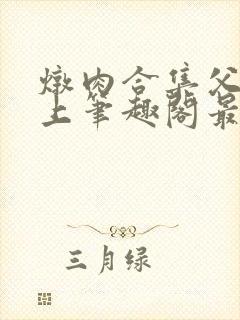 燉肉合集父
上笔趣阁最
三月绿